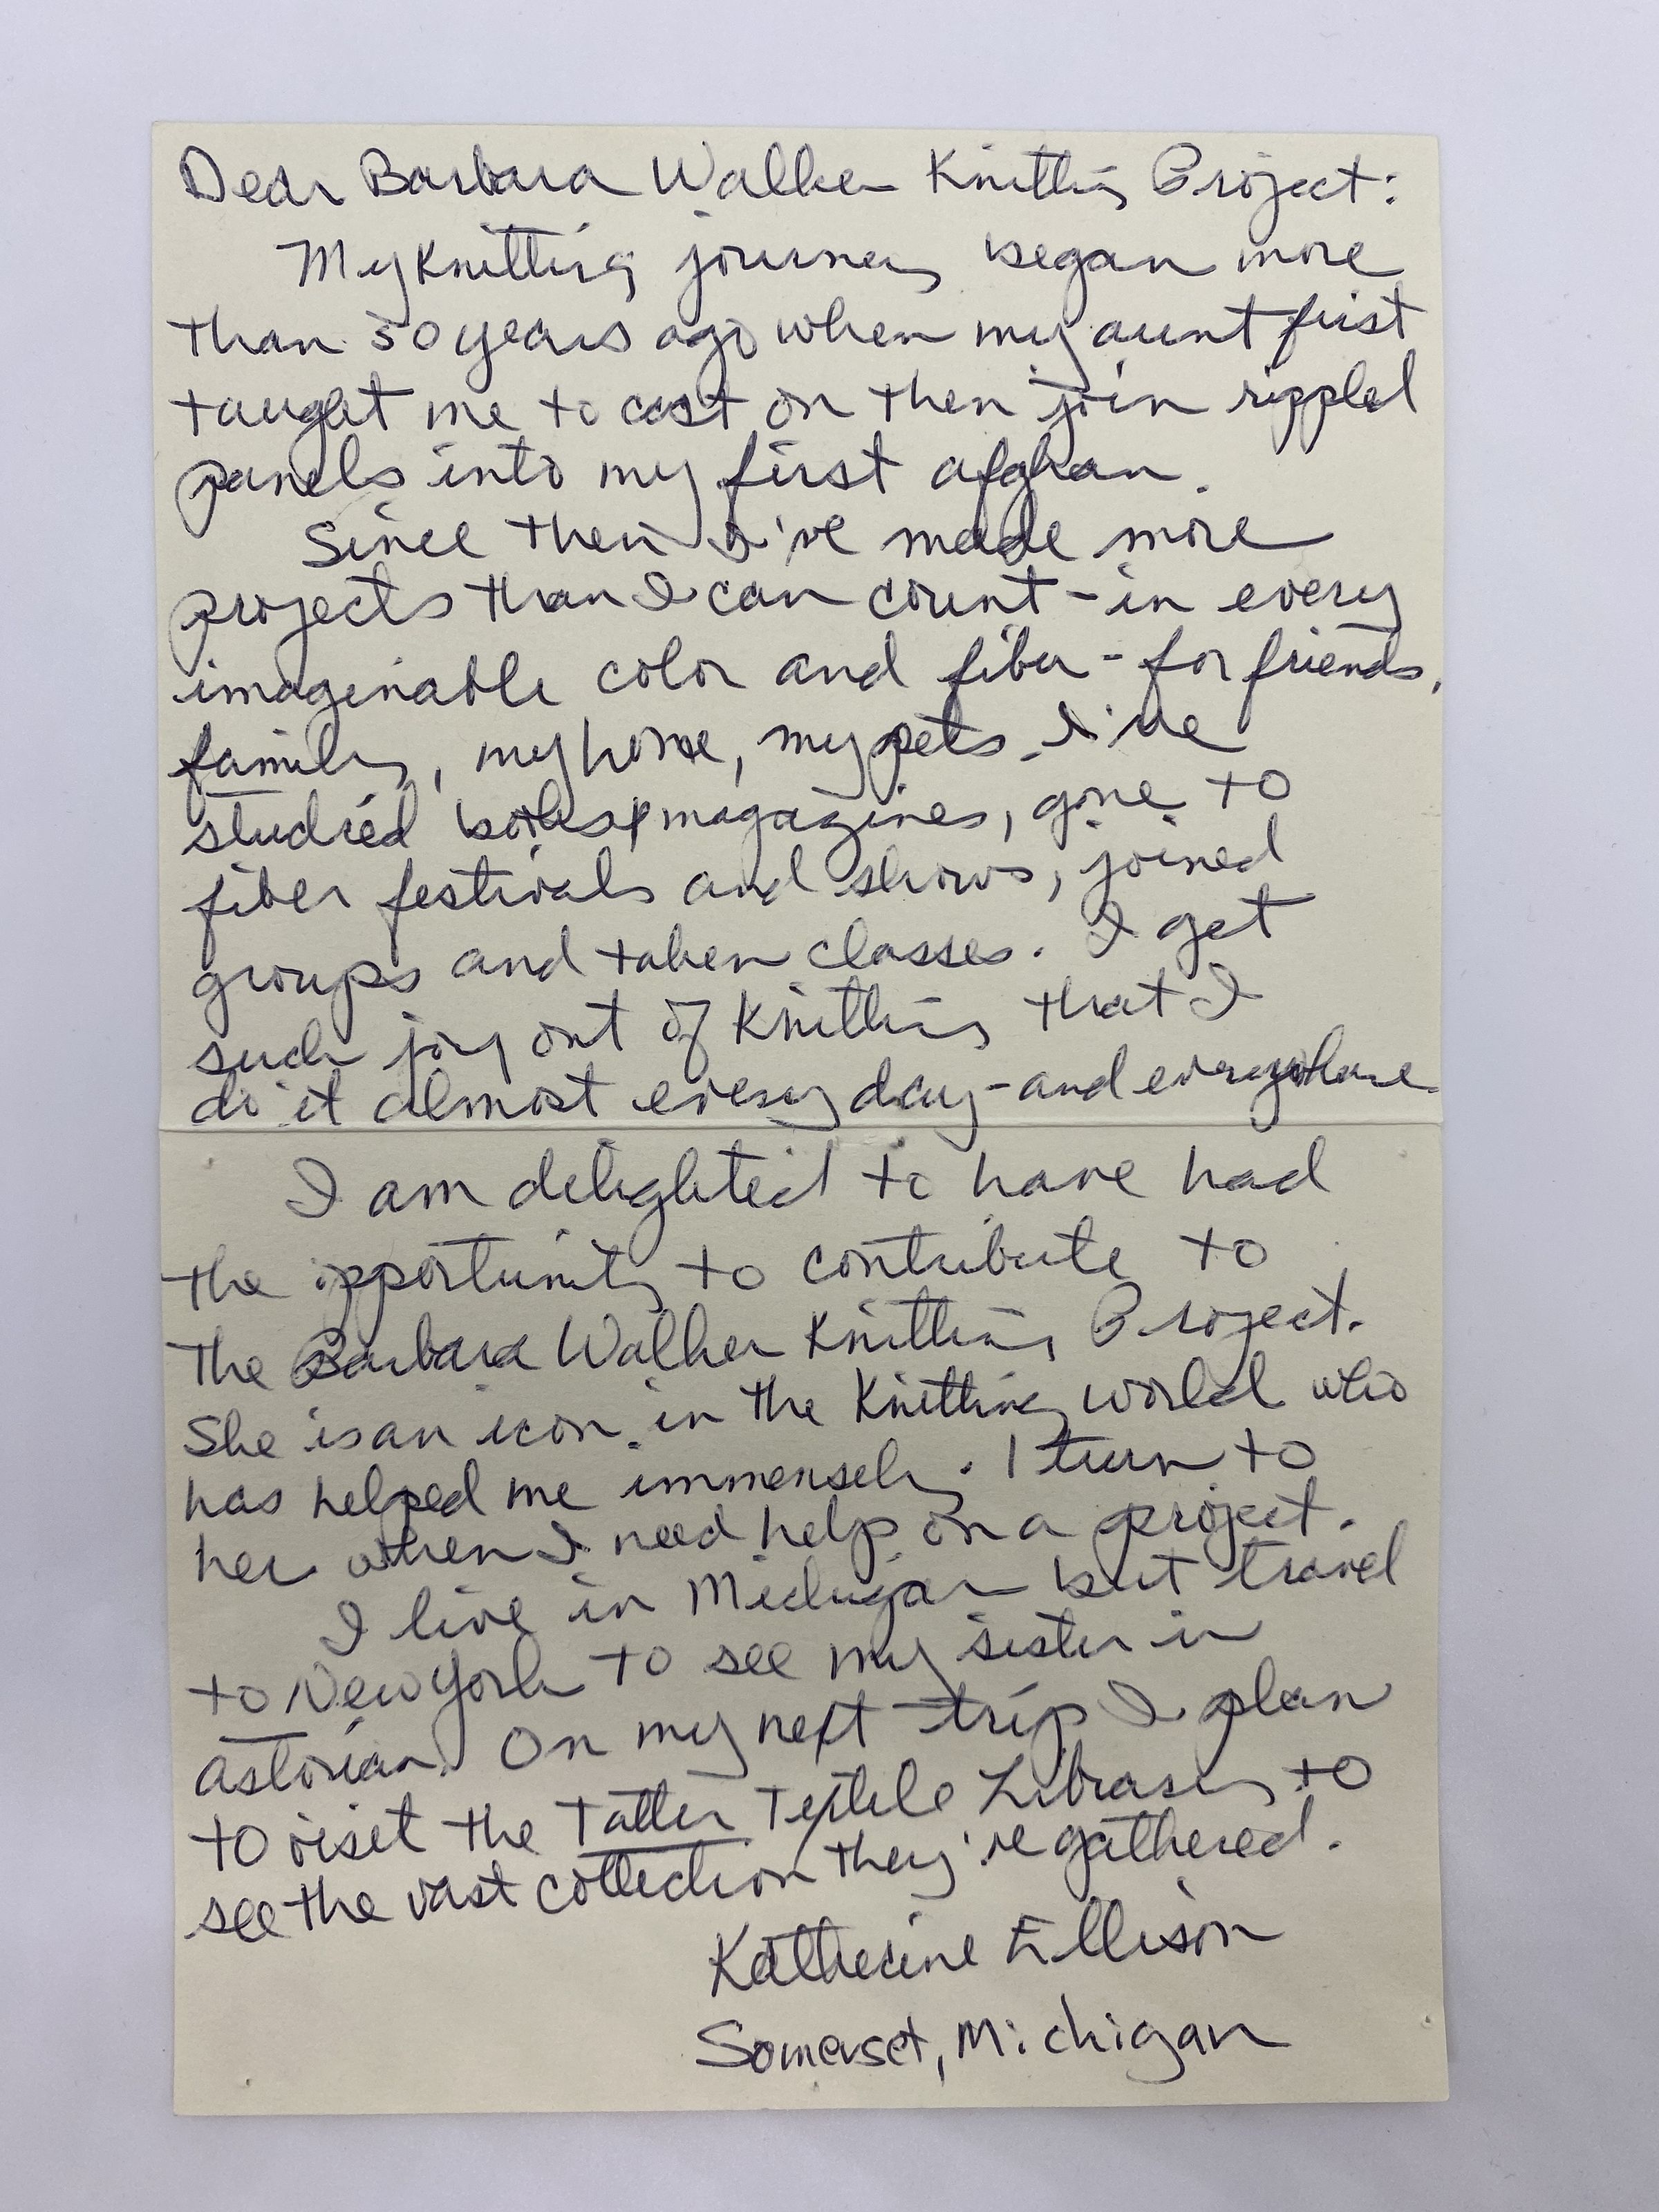 Dear Barbara Walker Knitting Project:
My Knitting journey began more
than 50 years ago when my aunt first
taught me to cast on then join rippled
panels into my first afghan.
Since then I've made more
projects than I can count - in every
imaginable color and fiber - for friends,
family, my home, my pets. I've
studied books & magazines, gone to
fiber festivals and shows, joined
groups and taken classes. I get
such joy out of Knitting that I
do it almost every day - and everywhere
I am delighted to have had
the opportunity to contribute to
The Barbara Walker Knitting Project.
She is an icon in the Knitting world who
has helped me immensely. I turn to
her when I need help on a project.
I live in Michigan but travel
to New York to see my sister in
Astoria. On my next trip I plan
to visit the Tatter Textile Library to
see the vast collection they've gathered.
Katherine Ellison
Somerset, Michigan